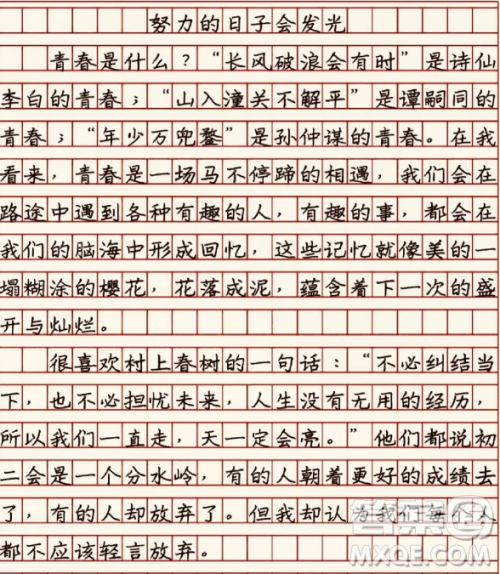 努力的日子会发光
青春是什么？“长风破浪会有时”是诗仙
李白的青春；“山入潼关不解平”是谭嗣同的
青春；“年少万兜鍪”是孙仲谋的青春。在我
看来，青春是一场马不停蹄的相遇，我们会在
路途中遇到各种有趣的人，有趣的事，都会在
我们的脑海中形成回忆，这些记忆就像美的一
塌糊涂的樱花，花落成泥，蕴含着下一次的盛
开与灿烂。
很喜欢村上春树的一句话：“不必纠结当
下，也不必担忧未来，人生没有无用的经历，
所以我们一直走，天一定会亮。”他们都说初
二会是一个分水岭，有的人朝着更好的成绩去
了，有的人却放弃了。但我却认为我们每个人
都不应该轻言放弃。
MXQE.COM